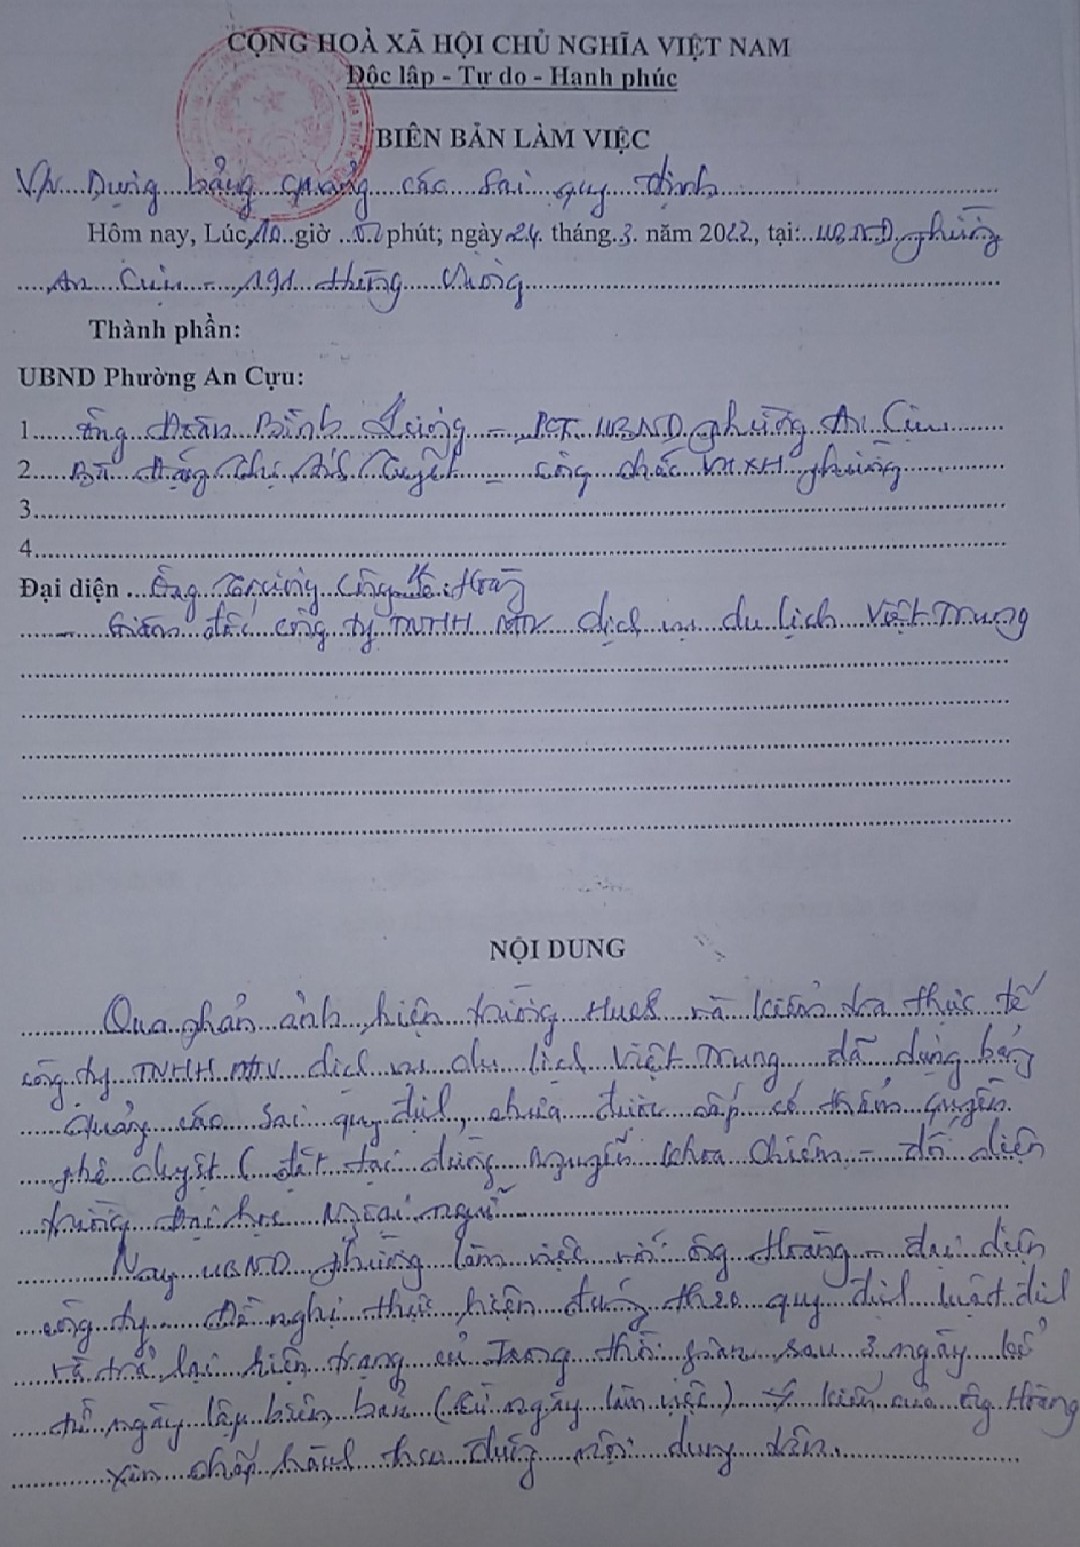 CỘNG HOÀ XÃ HỘI CHỦ NGHĨA VIỆT NAM
Độc lập - Tự do - Hạnh phúc
BIÊN BẢN LÀM VIỆC
V/v Dựng bảng quảng cáo sai quy định
Hôm nay, Lúc 10 giờ 02 phút; ngày 24 tháng 3 năm 2022, tại: UBND phường
An Cựu - 191 Hùng Vương
Thành phần:
UBND Phường An Cựu:
1. Ông Bình - PCT UBND phường An Cựu
2. Bà Đặng Thị Tuyết - công chức VHXH phường
3
4
Đại diện Ông Công Hoàng
- Giám đốc công ty TNHH MTV dịch vụ du lịch Việt Trung
NỘI DUNG
Qua phản ánh hiện trường HueS và kiểm tra thực tế
công ty TNHH MTV dịch vụ du lịch Việt Trung đã dựng bảng
quảng cáo sai quy định, chưa được cấp có thẩm quyền
phê duyệt (đặt tại đường Nguyễn Khoa Chiêm - đối diện
trường Đại học Ngoại ngữ
Nay UBND phường làm việc với ông Hoàng - đại diện
công ty. Đề nghị thực hiện đúng theo quy định luật định
và trả lại hiện trạng cũ Trong thời gian sau 3 ngày kể
từ ngày lập biên bản ( ngày làm việc) ý kiến của ông Hoàng
xin chấp hành theo đúng nội dung trên.